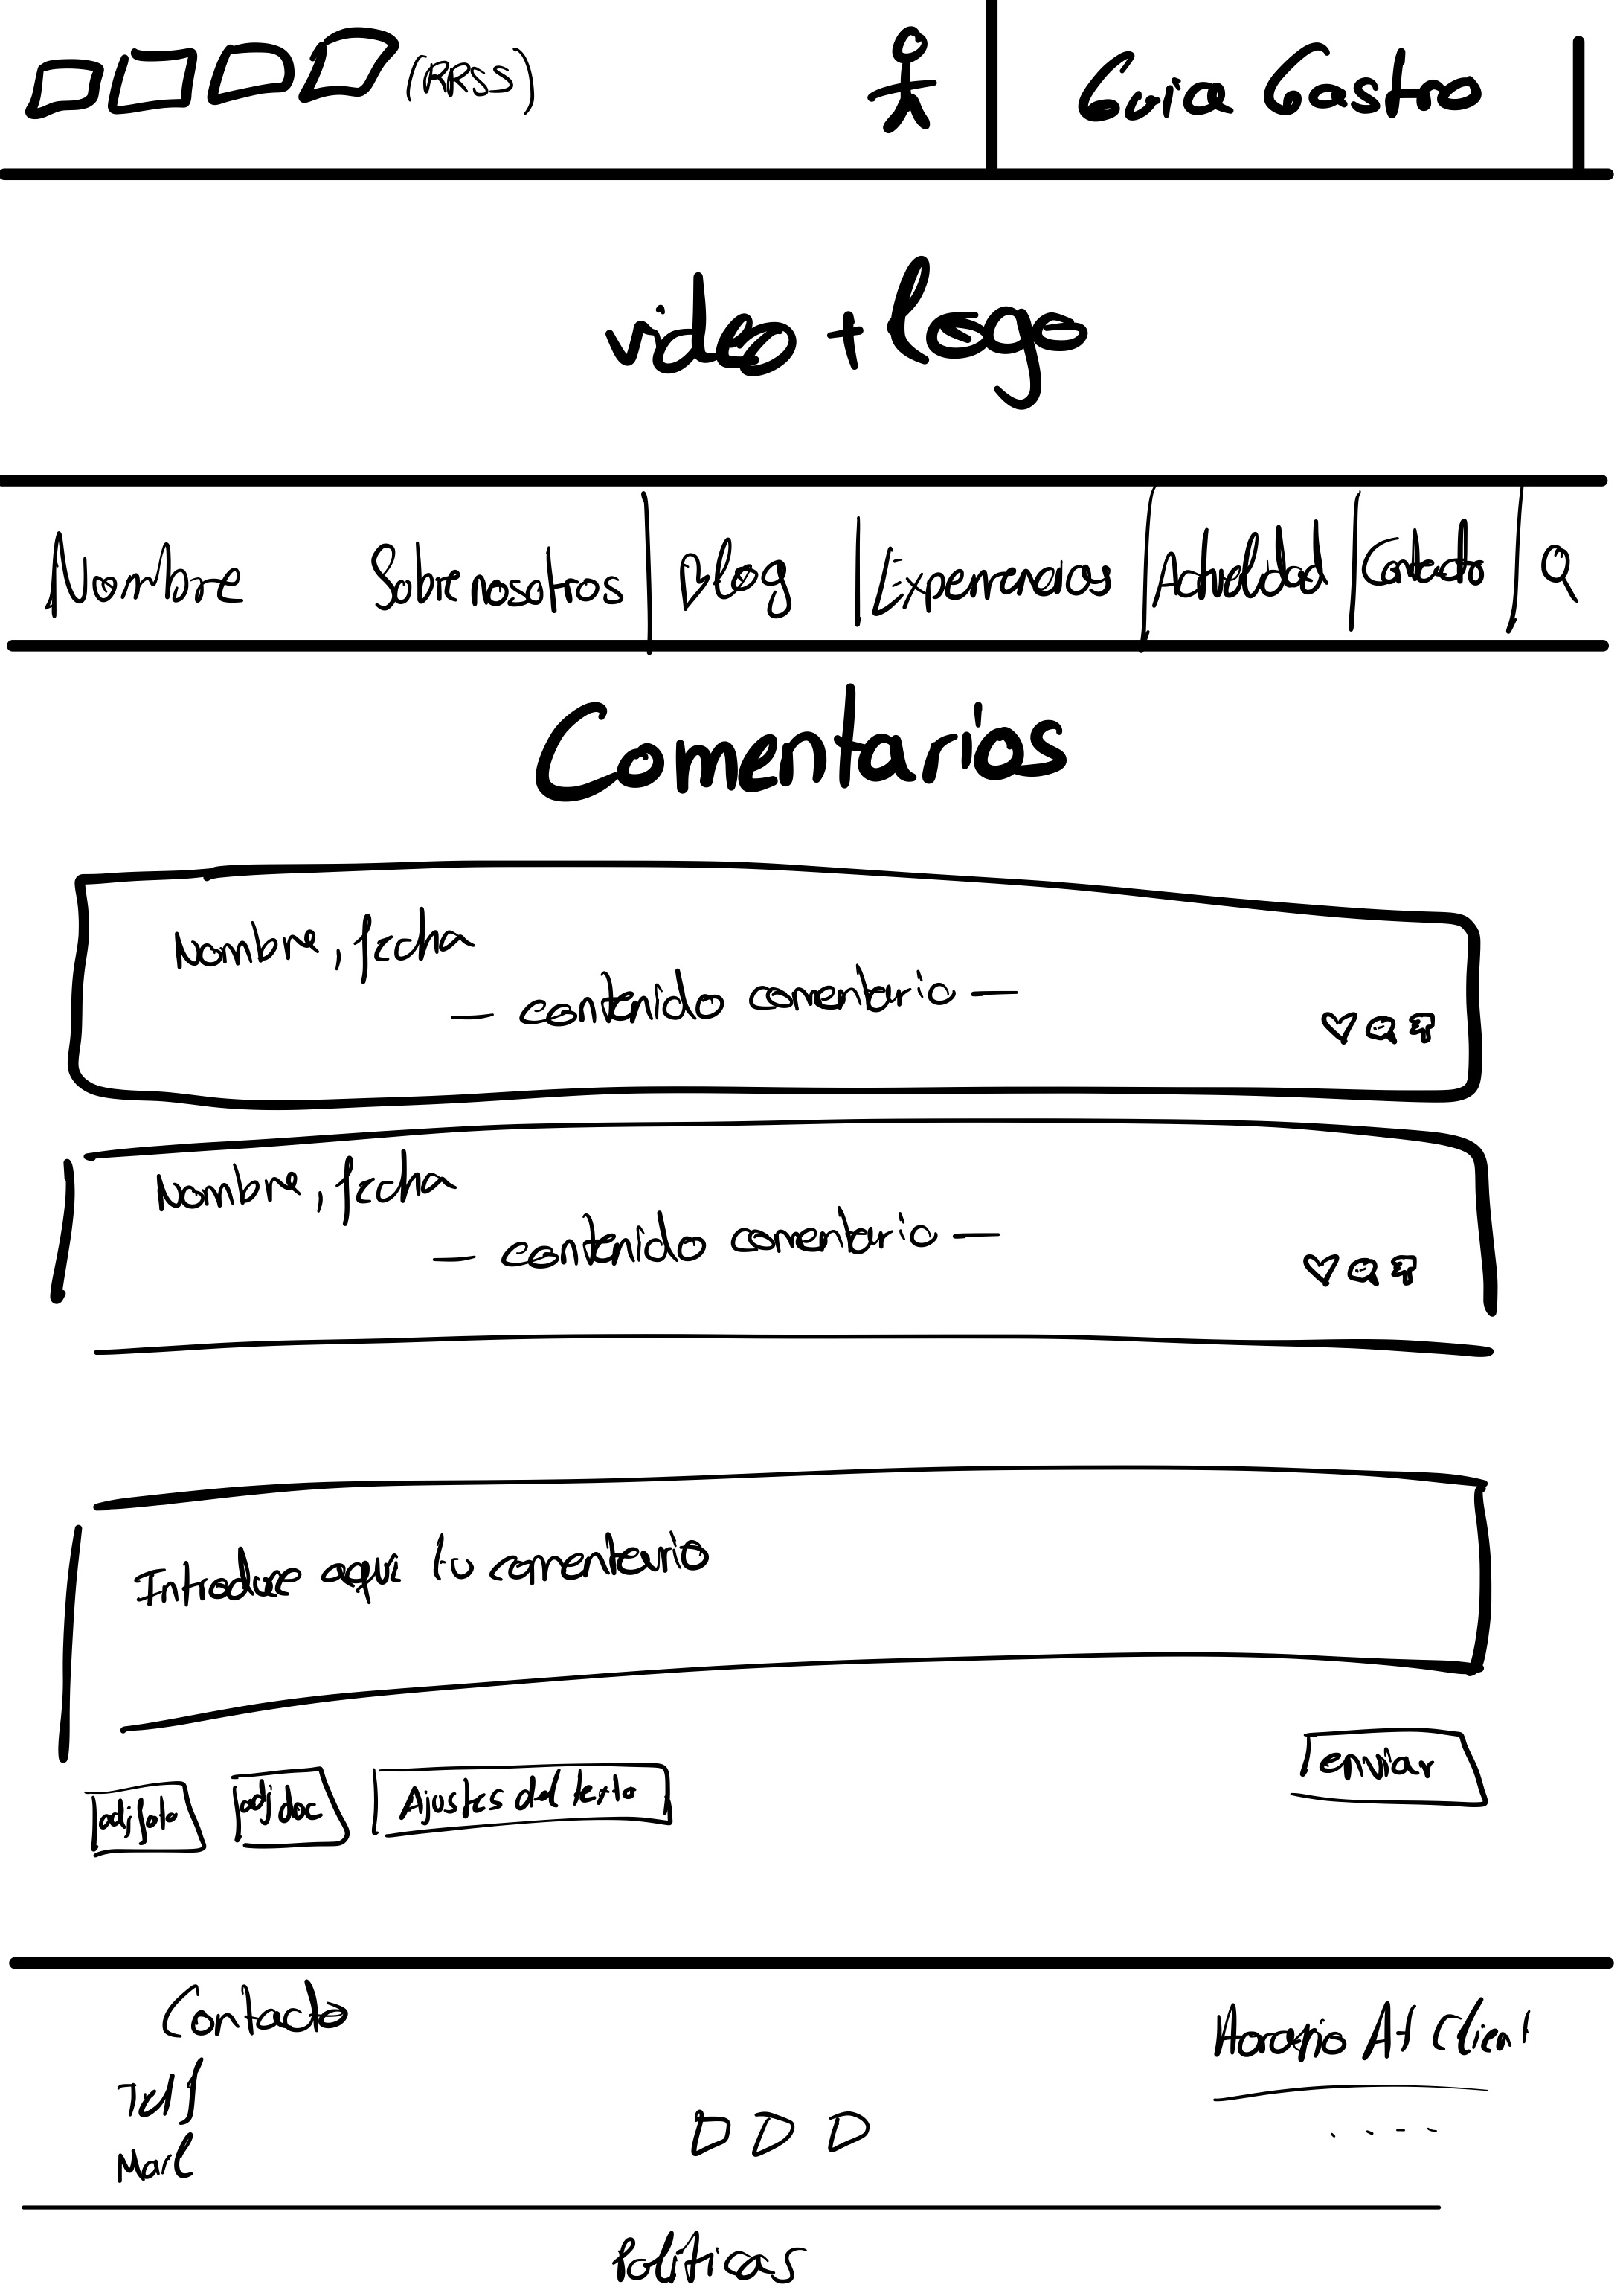 (RRSS)
Guía Gastro
video + logo
Nombre Sobre nosotros Blog Experiencias Actividad Contacto
Comentarios
Nombre, fecha
— contenido comentario —
Nombre, fecha
— contenido comentario —
Introduce aqui tu comentario
enviar
adj foto adj doc Ajustes del texto
Contacto
Horario At Client
Telf
Mail
Políticas